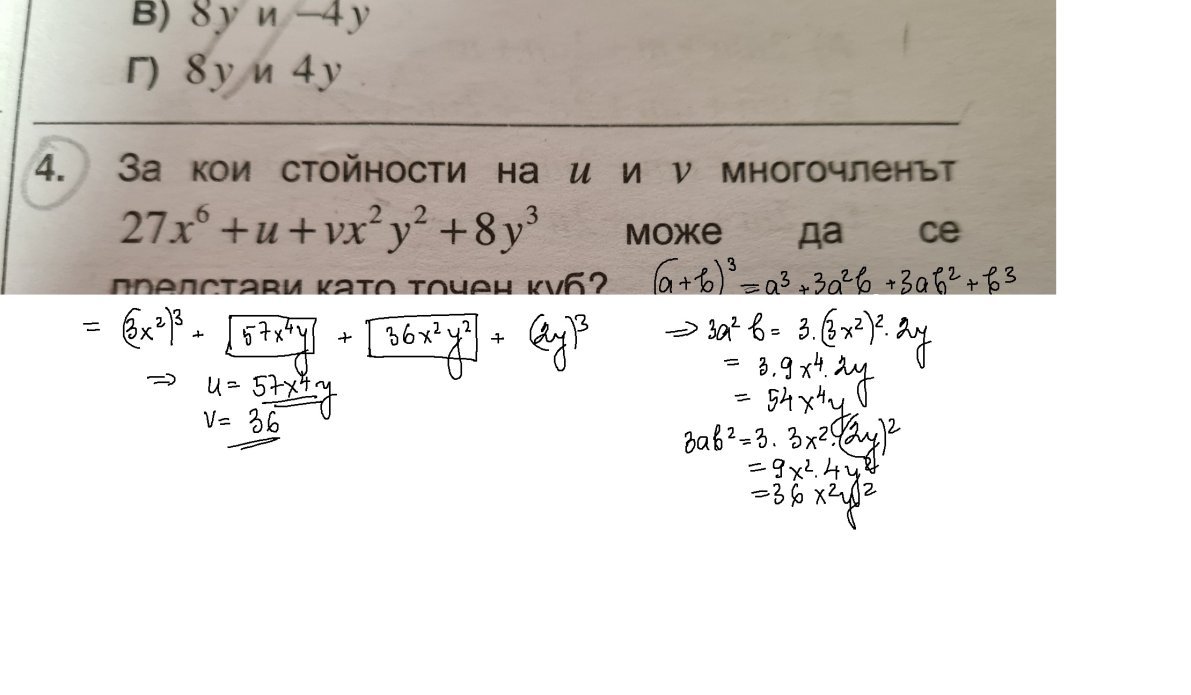 В) 8y и −4y
Г) 8y и 4y
4. За кои стойности на u и v многочленът
27x⁶ + u + vx²y² + 8y³ може да се
представи като точен куб? (a+b)³ = a³ + 3a²b + 3ab² + b³
= (3x²)³ + 57x⁴y + 36x²y² + (2y)³ => 3a²b = 3.(3x²)².2y
= 3.9x⁴.2y
=> u = 57x⁴y
= 54x⁴y
v = 36
3ab² = 3.3x².(2y)²
= 9x².4y²
= 36x²y²